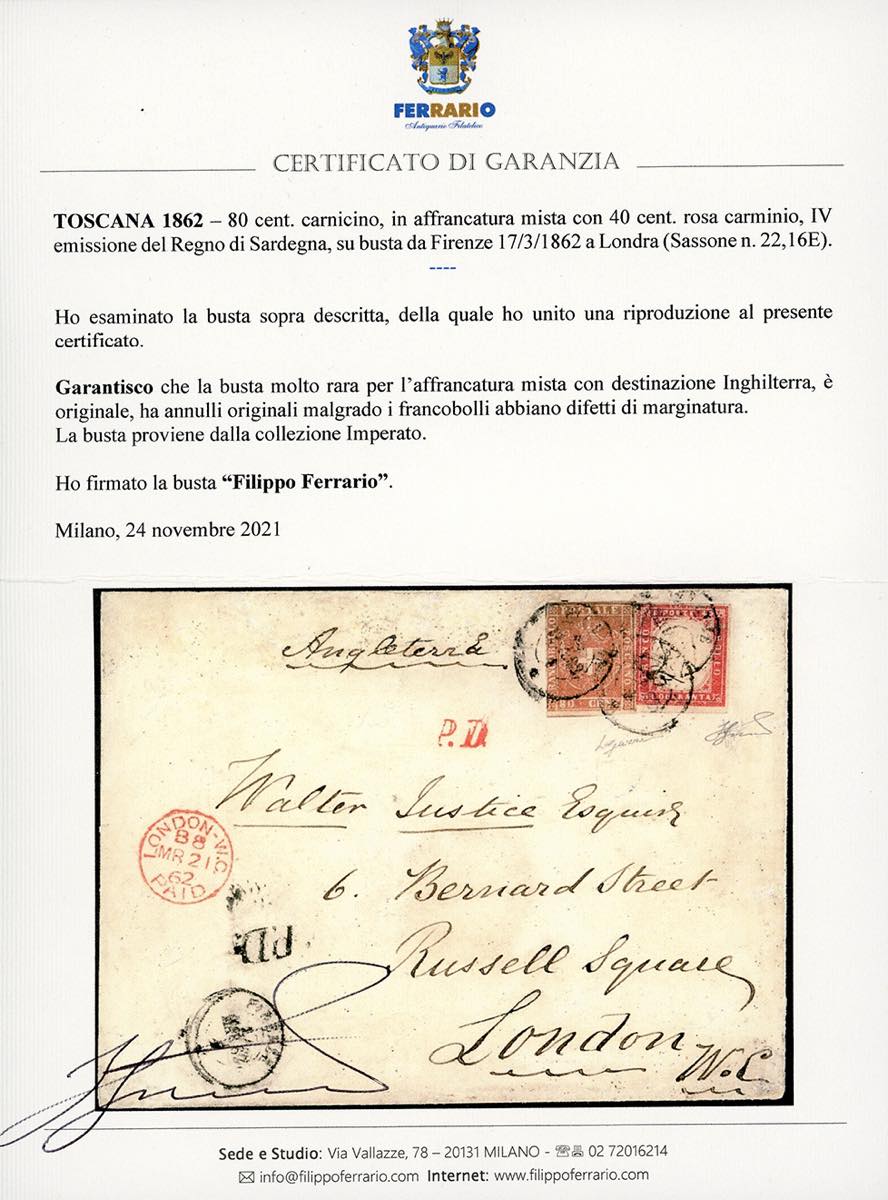 FERRARIO
Antiquario Filatelico
CERTIFICATO DI GARANZIA
TOSCANA 1862 – 80 cent. carnicino, in affrancatura mista con 40 cent. rosa carminio, IV
emissione del Regno di Sardegna, su busta da Firenze 17/3/1862 a Londra (Sassone n. 22,16E).
----
Ho esaminato la busta sopra descritta, della quale ho unito una riproduzione al presente
certificato.
Garantisco che la busta molto rara per l'affrancatura mista con destinazione Inghilterra, è
originale, ha annulli originali malgrado i francobolli abbiano difetti di marginatura.
La busta proviene dalla collezione Imperato.
Ho firmato la busta “Filippo Ferrario”.
Milano, 24 novembre 2021
Angleterre
80
QUARANTA
P.D.
Walter Justice Esquire
LONDON-W.C.
B8
MR 21
62
PAID
6. Bernard Street
P.D.
Russell Square
London
W.C
Sede e Studio: Via Vallazze, 78 – 20131 MILANO - 02 72016214
info@filippoferrario.com Internet: www.filippoferrario.com